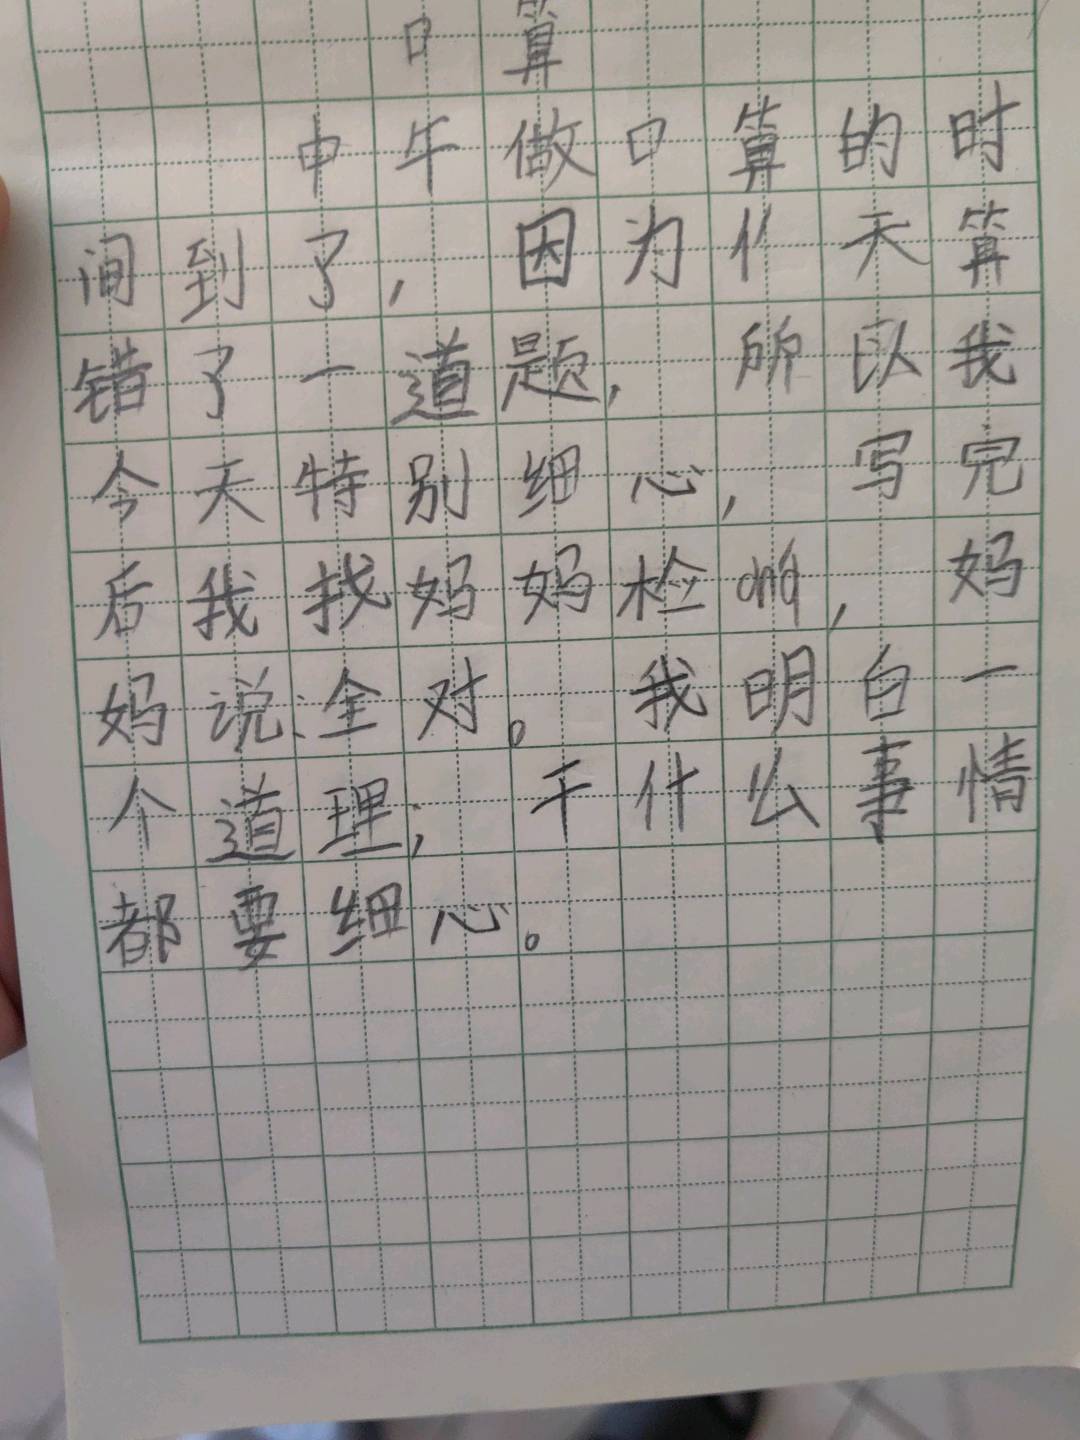 口算
中午做口算的时
间到了，因为天算
错了一道题，所以我
今天特别细心，写完
后我找妈妈检cha，妈
妈说：全对。我明白一
个道理；干什么事情
都要细心。